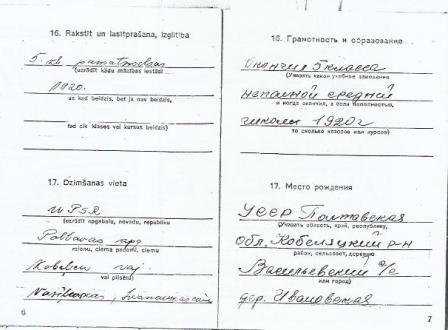 16. Rakstīt un lasītprašana, izglītība
5. kl. pamatskolas
(uzrādīt kādu mācības iestādi
1920.
un kad beidzis, bet ja nav beidzis,
tad cik klases vai kursus beidzis)
17. Dzimšanas vieta
(uzrādīt apgabalu, novadu, republiku
Poltavas apg
raionu, ciema padomi, ciemu
raj
vai pilsētu)
6
16. Грамотность и образование
Окончил 5 класса
(Указать какое учебное заведение
неполной средней
и когда окончил, а если неполностью,
школы 1920г
то сколько классов или курсов)
17. Место рождения
УССР Полтавская
(Указать область, край, республику,
обл. Кобеляцкий р-н
район, сельсовет, деревню
Васильевский с/с
или город)
дер. Ивановская
7